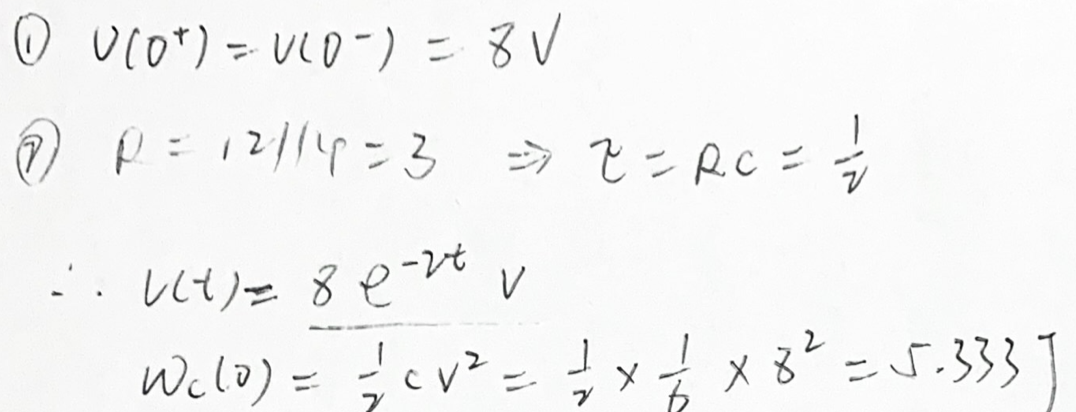 ① v(0⁺) = v(0⁻) = 8V
② R = 12//4 = 3 ⇒ τ = RC = 1/2
∴ v(t) = 8 e^{-2t} V
Wc(0) = 1/2 cv² = 1/2 × 1/6 × 8² = 5.333 J